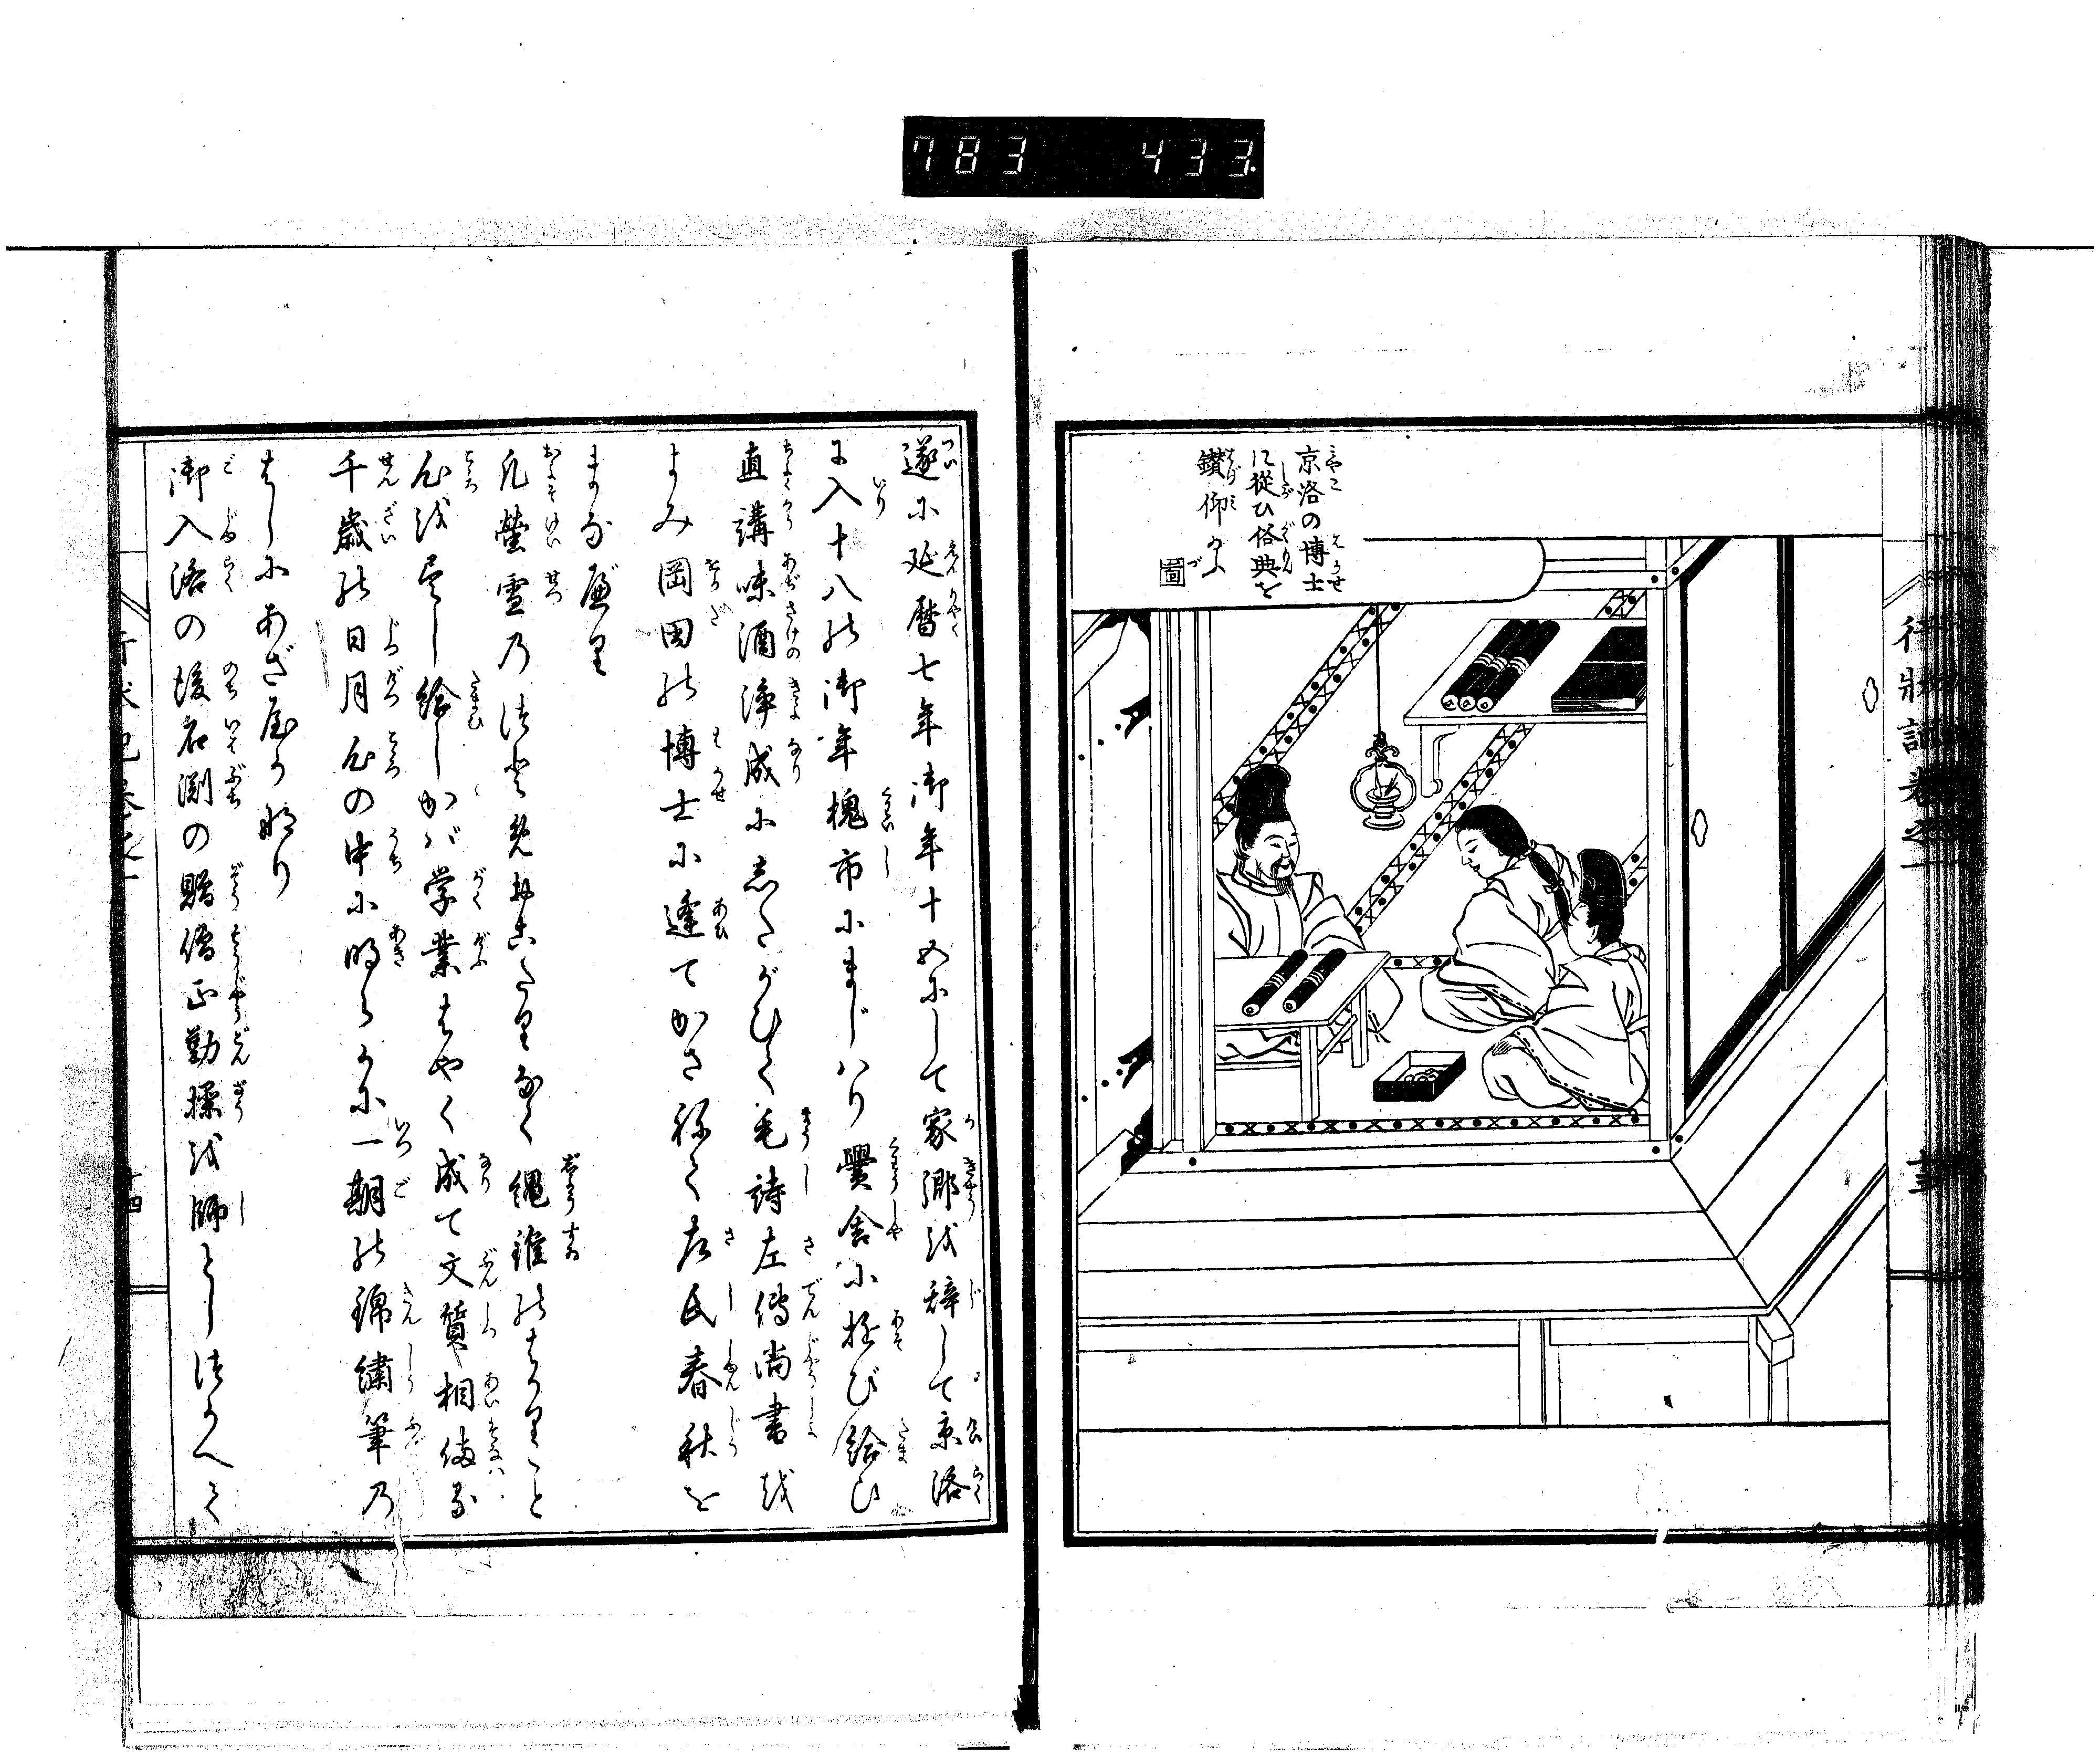 783 433
京洛の博士
に從ひ俗典を
鑚仰のふ
圖
行狀記卷之一
遂に延暦七年御年十五にして家郷を辞して京洛
に入十八の御年槐市にまじハり黌舎に遊び給ひ
直講味酒浄成にしたがひて毛詩左傳尚書を
よみ岡田の博士に逢てかさねて左氏春秋を
まなべり
凡螢雪乃つとめおこたりなく縄錐のはかりこと
心を尽し給しかバ学業はやく成て文質相備る
千歳の日月心の中に明らかに一期の錦繍筆乃
はしにあざやか也
御入洛の後石渕の贈僧正勤操を師としつかへて
十四